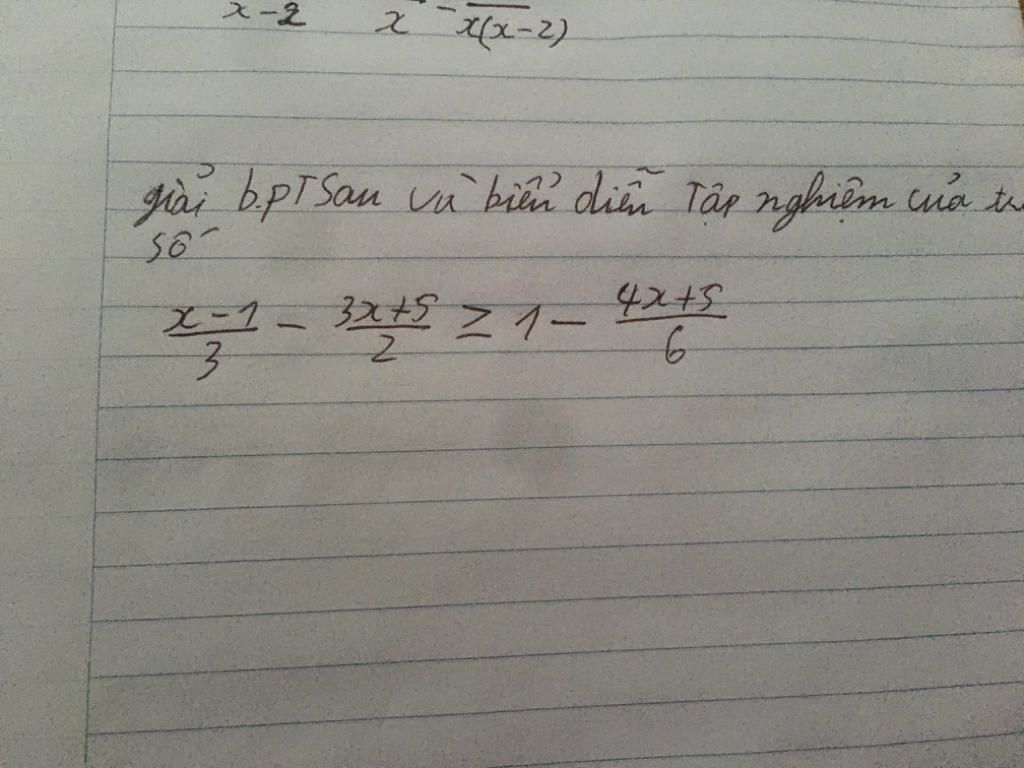 x-2 x - x(x-2)
giải b.pT Sau và biểu diễn Tập nghiệm của
số
x-1/3 - 3x+5/2 ≥ 1 - 4x+5/6